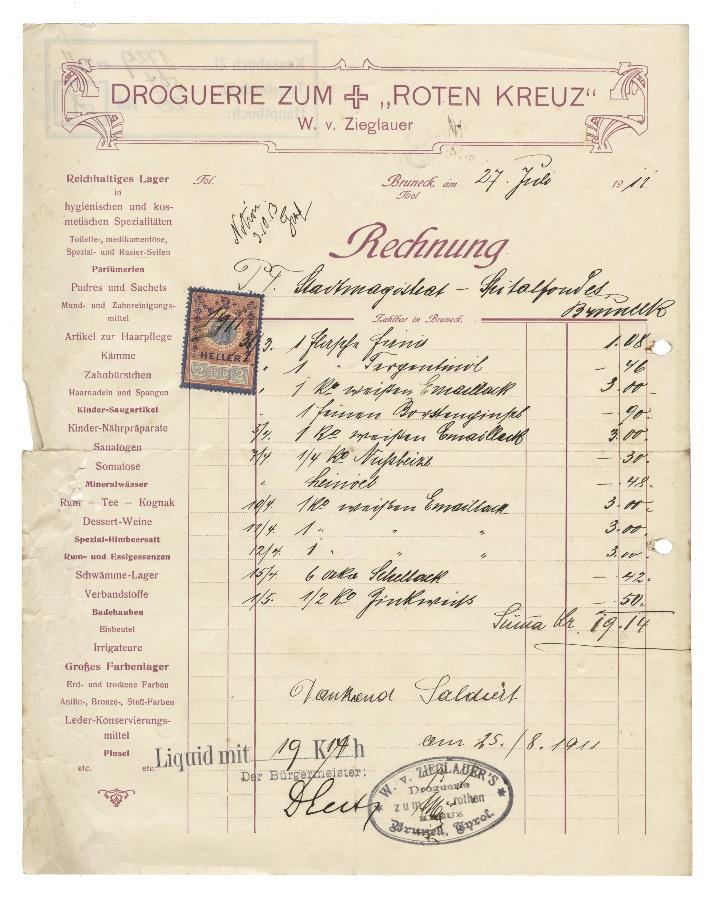 DROGUERIE ZUM ✚ „ROTEN KREUZ“
W. v. Zieglauer
Reichhaltiges Lager
in
hygienischen und kos-
metischen Spezialitäten
Toilette-, medikamentöse,
Spezial- und Rasier-Seifen
Parfümerien
Pudres und Sachets
Mund- und Zahnreinigungs-
mittel
Artikel zur Haarpflege
Kämme
Zahnbürstchen
Haarnadeln und Spangen
Kinder-Saugartikel
Kinder-Nährpräparate
Sanatogen
Somatose
Mineralwässer
Rum — Tee — Kognak
Dessert-Weine
Spezial-Himbeersaft
Rum- und Essigessenzen
Schwämme-Lager
Verbandstoffe
Badehauben
Eisbeutel
Irrigateure
Großes Farbenlager
Erd- und trockene Farben
Anilin-, Bronze-, Stoff-Farben
Leder-Konservierungs-
mittel
Pinsel
etc. etc.
Fol.
Bruneck, am 27. Juli 1911
Tirol
Rechnung
P.T. Stadtmagistrat – Spitalfondes,
Bruneck
Zahlbar in Bruneck.
2
HELLER
2 2
1 flasche 1.08
" 1 " Terpentinöl – 46
" 1 Ko weißen Emaillack 3.00
" 1 feinen Borstenpinsel – 90
5/4. 1 Ko weißen Emaillack 3.00
7/4. 1/4 Ko Nußbeize – 30
" Leinöl – 48
10/4. 1 Ko weißen Emaillack 3.00
11/4. 1 " " " 3.00
12/4. 1 " " " 3.00
15/4. 6 deka Schellack – 42
1/5. 1/2 Ko Zinkweiß – 50
Suma Kr. 19.14
Dankend Saldiert
am 25./8. 1911
Liquid mit 19 K 14 h
Der Bürgermeister:
W. v. ZIEGLAUER'S
Droguerie
zum rothen
KREUZ
Bruneck, Tyrol.